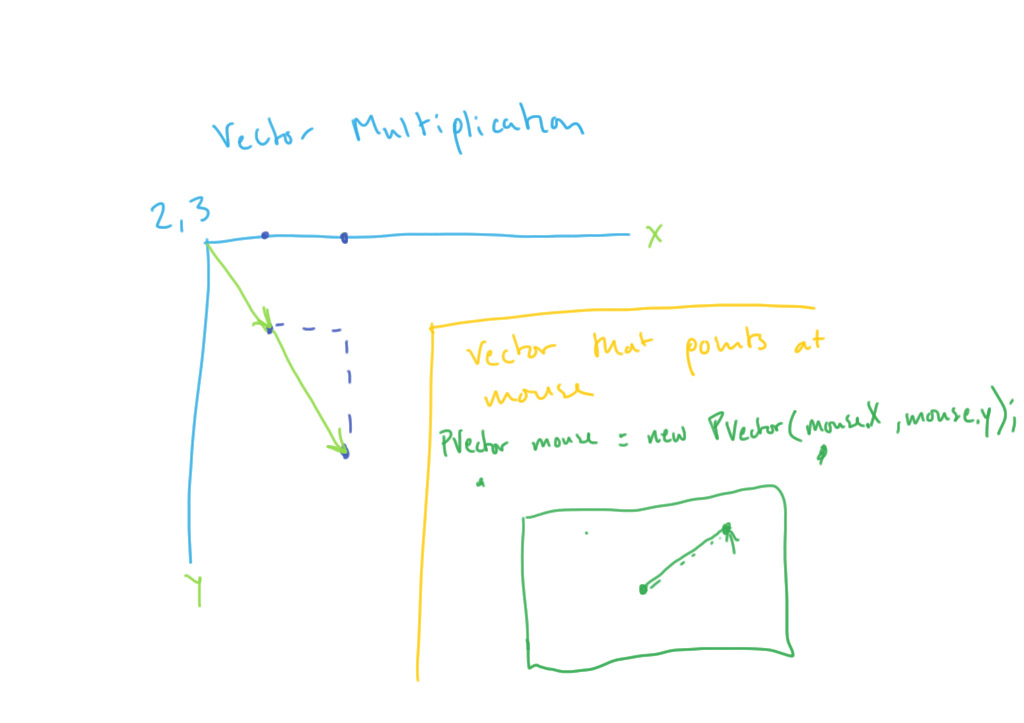 Vector Multiplication
2,3
X
Vector that points at
mouse
PVector mouse = new PVector(mouse.X, mouse.y);
Y